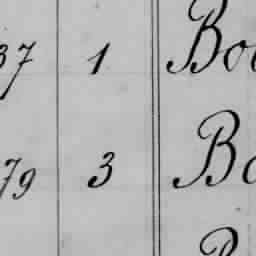 37 1 Bo
79 3 Bo